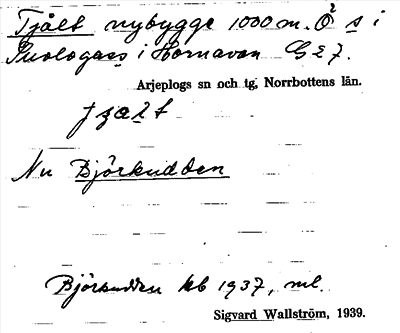 Tjålt nybygge 1000 m. Ö s i
i Hornavan G 27.
Arjeplogs sn och tg, Norrbottens län.
Nu Björkudden
Björkudden kb 1937, ml.
Sigvard Wallström, 1939.